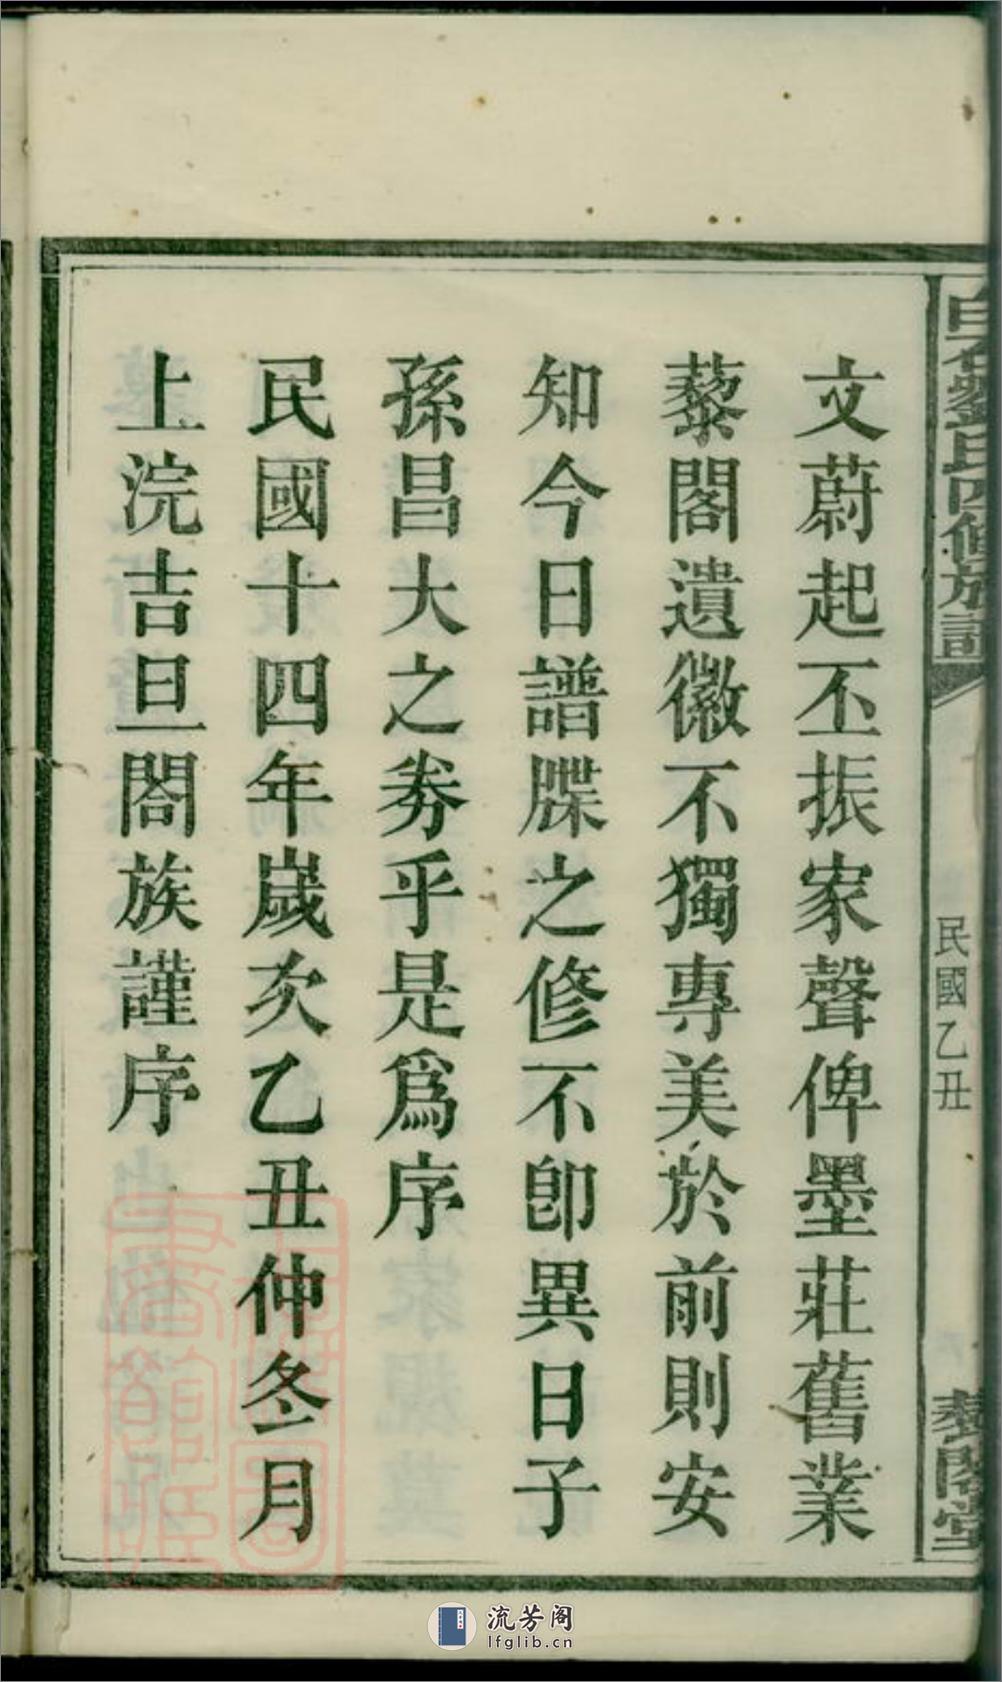 白石劉氏四修族譜
民國乙丑
藜閣堂
文蔚起丕振家聲俾墨莊舊業
藜閣遺徽不獨專美於前則安
知今日譜牒之修不卽異日子
孫昌大之券乎是爲序
民國十四年歲次乙丑仲冬月
上浣吉旦閤族謹序
流芳阁
lfglib.cn